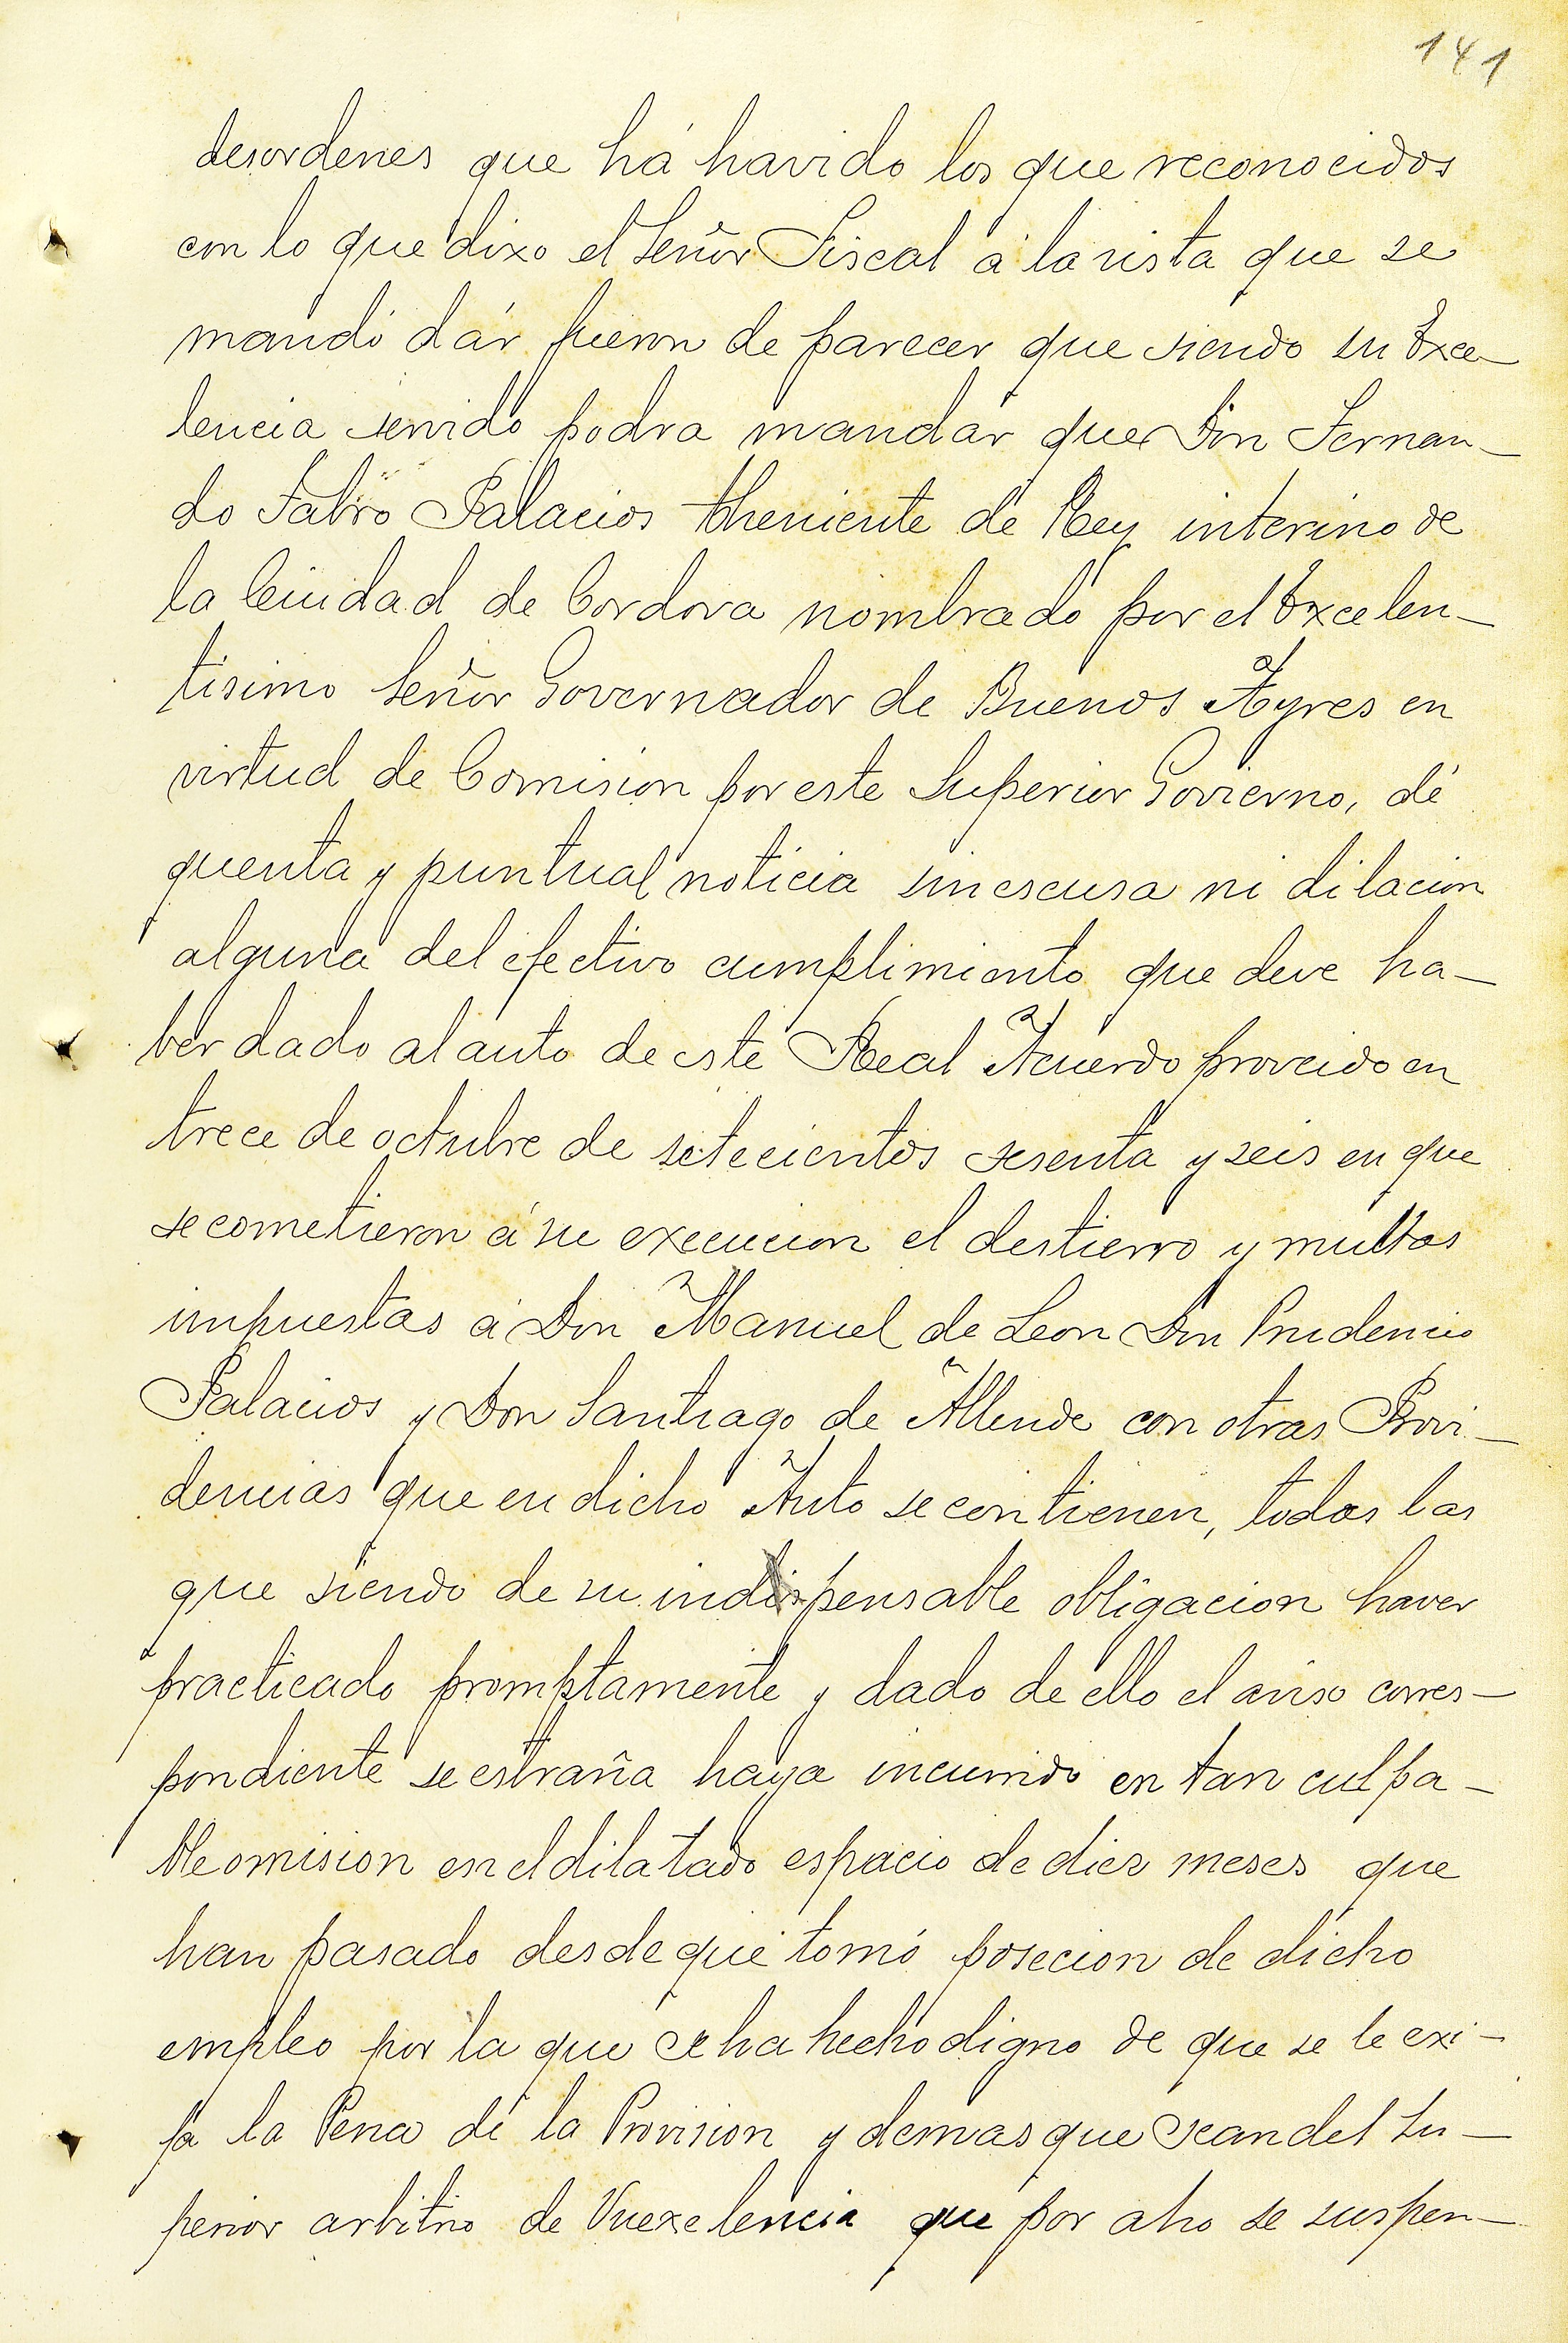 141
desordenes que há havido los que reconocidos
con lo que dixo el Señor Fiscal á la vista que se
mandó dár fueron de parecer que siendo su Exce-
lencia servido podra mandar que Don Fernan-
do Fabro Palacios theniente de Rey interino de
la Ciudad de Cordova nombrado por el Excelen-
tisimo Señor Governador de Buenos Ayres en
virtud de Comision por este Superior Govierno, dé
quenta y puntual noticia sin escusa ni dilacion
alguna del efectivo cumplimiento que deve ha-
ber dado al auto de este Real Acuerdo proveido en
trece de octubre de setecientos sesenta y seis en que
se cometieron á su execucion el destierro y multas
impuestas á Don Manuel de Leon Don Prudencio
Palacios y Don Santiago de Allende con otras Provi-
dencias que en dicho Auto se contienen, todas las
que siendo de su indispensable obligacion haver
practicado promptamente y dado de ello el aviso corres-
pondiente se estraña haya incurrido en tan culpa-
ble omision en el dilatado espacio de diez meses que
han pasado desde que tomó posecion de dicho
empleo por la que se ha hecho digno de que se le exi-
ja la Pena de la Provision y demas que sean del Su-
perior arbitrio de Vuexelencia que por aho se suspen-